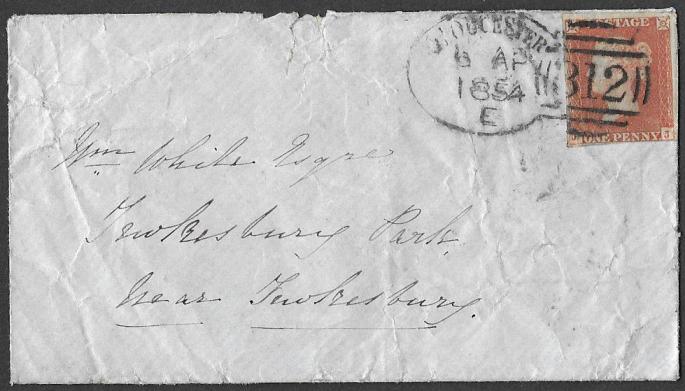 GLOUCESTER
6 AP
1854
E
312
POSTAGE
ONE PENNY
J
Wm White Esqre
Tewkesbury Park
Near Tewkesbury.